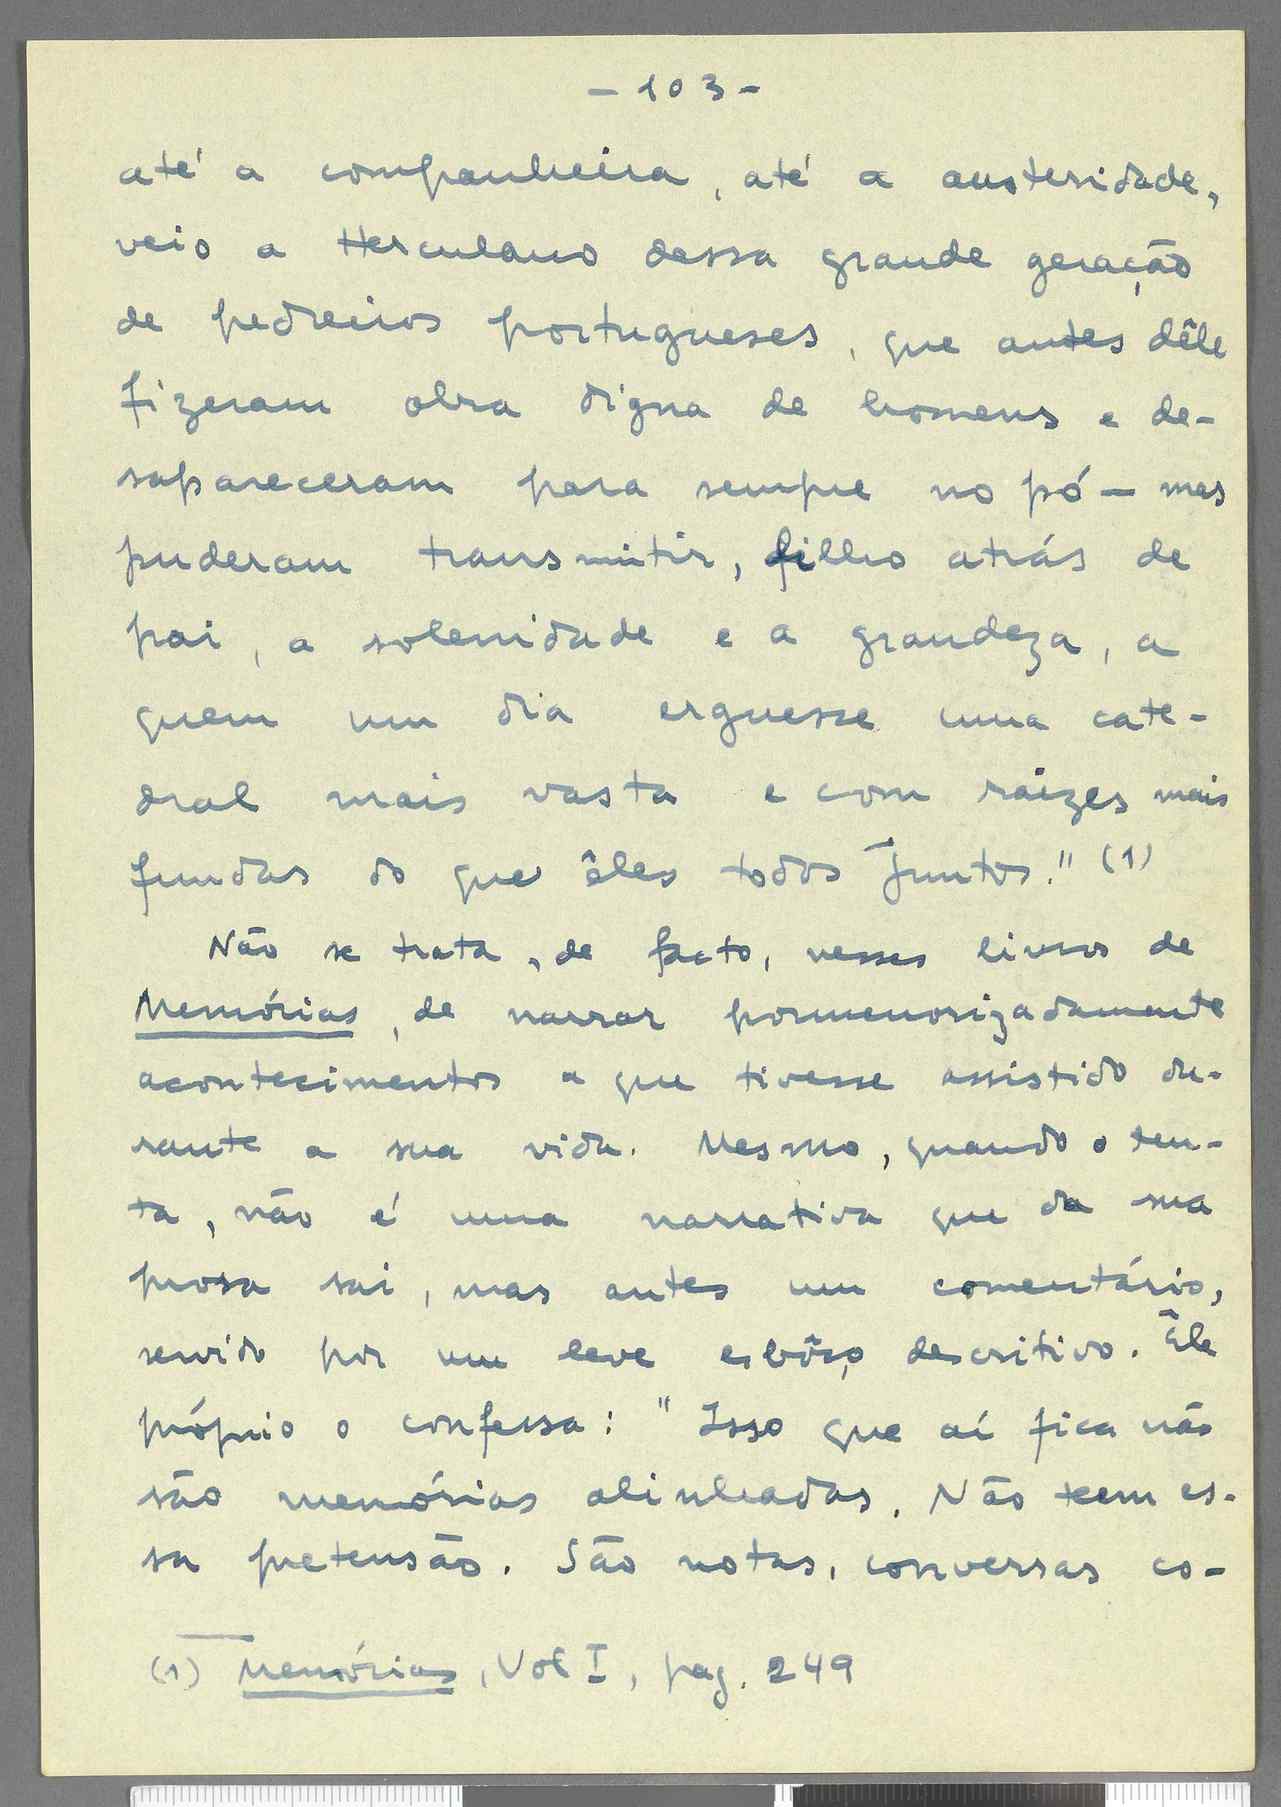 - 103 -
até a companheira, até a austeridade,
veio a Herculano dessa grande geração
de pedreiros portugueses, que antes dêle
fizeram obra digna de homens e de-
sapareceram para sempre no pó — mas
puderam transmitir, filho atrás de
pai, a solenidade e a grandeza, a
quem um dia erguesse uma cate-
dral mais vasta e com raizes mais
fundas do que êles todos juntos." (1)
Não se trata, de facto, nesses livros de
Memórias, de narrar pormenorizadamente
acontecimentos a que tivesse assistido du-
rante a sua vida. Mesmo, quando o ten-
ta, não é uma narrativa que da sua
prosa sai, mas antes um comentário,
servido por um leve esbôço descritivo. Êle
próprio o confessa: "Isso que aí fica não
são memórias alinhadas. Não teem es-
sa pretensão. São notas, conversas co-
(1) Memórias, Vol I, pag. 249